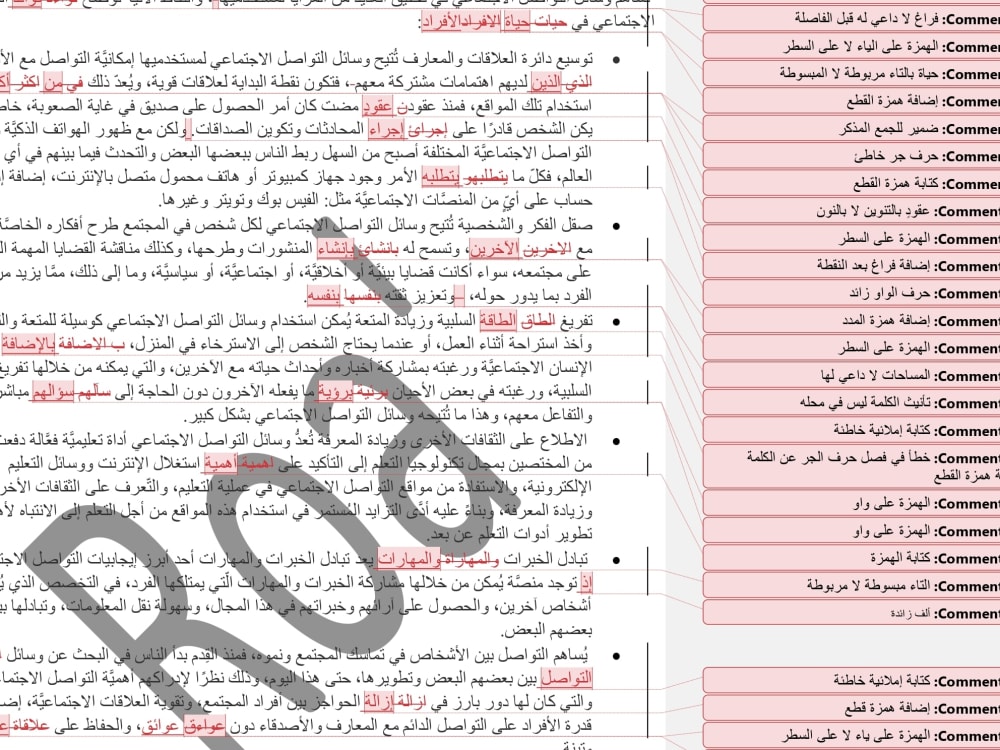 الاجتماعي في حيات حياة الافراد الأفراد:
توسيع دائرة العلاقات والمعارف تُتيح وسائل التواصل الاجتماعي لمستخدميها إمكانيَّة التواصل مع
الذي الذين لديهم اهتمامات مشتركة معهم، فتكون نقطة البداية لعلاقات قوية، ويُعدّ ذلك في من اكثر
استخدام تلك المواقع، فمنذ عقودن عقودٍ مضت كان أمر الحصول على صديق في غاية الصعوبة،
يكن الشخص قادرًا على إجرائ إجراء المحادثات وتكوين الصداقات. ولكن مع ظهور الهواتف الذكيَّة
التواصل الاجتماعيَّة المختلفة أصبح من السهل ربط الناس ببعضها البعض والتحدث فيما بينهم في أي
العالم، فكلّ ما يتطلبهو يتطلبه الأمر وجود جهاز كمبيوتر أو هاتف محمول متصل بالإنترنت، إضافة
حساب على أيٍّ من المنصَّات الاجتماعيَّة مثل: الفيس بوك وتويتر وغيرها.
صقل الفكر والشخصية تُتيح وسائل التواصل الاجتماعي لكل شخص في المجتمع طرح أفكاره الخاصَّة
مع الاخرين الآخرين، وتسمح له بانشاي بإنشاء المنشورات وطرحها، وكذلك مناقشة القضايا المهمة
على مجتمعه، سواء أكانت قضايا بيئيَّة أو أخلاقيَّة، أو اجتماعيَّة، أو سياسيَّة، وما إلى ذلك، ممَّا يزيد
الفرد بما يدور حوله، وتعزيز ثقته بنفسها بنفسه.
تفريغ الطاق الطاقة السلبية وزيادة المتعة يُمكن استخدام وسائل التواصل الاجتماعي كوسيلة للمتعة
وأخذ استراحة أثناء العمل، أو عندما يحتاج الشخص إلى الاسترخاء في المنزل، ب الاضافة بالإضافة
الإنسان الاجتماعيَّة ورغبته بمشاركة أخباره وأحداث حياته مع الآخرين، والتي يمكنه من خلالها تفريغ
السلبية، ورغبته في بعض الأحيان برئية برؤية ما يفعله الآخرون دون الحاجة إلى سألهم سؤالهم
والتفاعل معهم، وهذا ما تُتيحه وسائل التواصل الاجتماعي بشكل كبير.
الاطلاع على الثقافات الأخرى وزيادة المعرفة تُعدُّ وسائل التواصل الاجتماعي أداة تعليميَّة فعَّالة
من المختصين بمجال تكنولوجيا التعلم إلى التأكيد على اهمية أهمية استغلال الإنترنت ووسائل التعليم
الإلكترونية، والاستفادة من مواقع التواصل الاجتماعي في عملية التعليم، والتّعرف على الثقافات
وزيادة المعرفة، وبناءً عليه أدَّى التزايد المُستمر في استخدام هذه المواقع من أجل التعلم إلى الانتباه
تطوير أدوات التعلم عن بعد.
تبادل الخبرات والمهاراة والمهارات يعد تبادل الخبرات والمهارات أحد أبرز إيجابيات التواصل
إذ توجد منصَّة يُمكن من خلالها مشاركة الخبرات والمهارات الّتي يمتلكها الفرد، في التخصص الذي
أشخاص آخرين، والحصول على آرائهم وخبراتهم في هذا المجال، وسهولة نقل المعلومات، وتبادلها
بعضهم البعض.
يُساهم التواصل بين الأشخاص في تماسك المجتمع ونموه، فمنذ القِدم بدأ الناس في البحث عن وسائل
التواصل بين بعضهم البعض وتطويرها، حتى هذا اليوم، وذلك نظرًا لإدراكهم أهميَّة التواصل
والتي كان لها دور بارز في ازالة إزالة الحواجز بين أفراد المجتمع، وتقوية العلاقات الاجتماعيَّة،
قدرة الأفراد على التواصل الدائم مع المعارف والأصدقاء دون عواءق عوائق، والحفاظ على علاقاة
Comment: فراغ لا داعي له قبل الفاصلة
Comment: الهمزة على الياء لا على السطر
Comment: حياة بالتاء مربوطة لا المبسوطة
Comment: إضافة همزة القطع
Comment: ضمير للجمع المذكر
Comment: حرف جر خاطئ
Comment: كتابة همزة القطع
Comment: عقودٍ بالتنوين لا بالنون
Comment: الهمزة على السطر
Comment: إضافة فراغ بعد النقطة
Comment: حرف الواو زائد
Comment: إضافة همزة المدد
Comment: الهمزة على السطر
Comment: المساحات لا داعي لها
Comment: تأنيث الكلمة ليس في محله
Comment: كتابة إملائية خاطئة
Comment: خطأ في فصل حرف الجر عن الكلمة
همزة القطع
Comment: الهمزة على واو
Comment: الهمزة على واو
Comment: كتابة الهمزة
Comment: التاء مبسوطة لا مربوطة
Comment: ألف زائدة
Comment: كتابة إملائية خاطئة
Comment: إضافة همزة قطع
Comment: الهمزة على ياء لا على السطر
Roa'